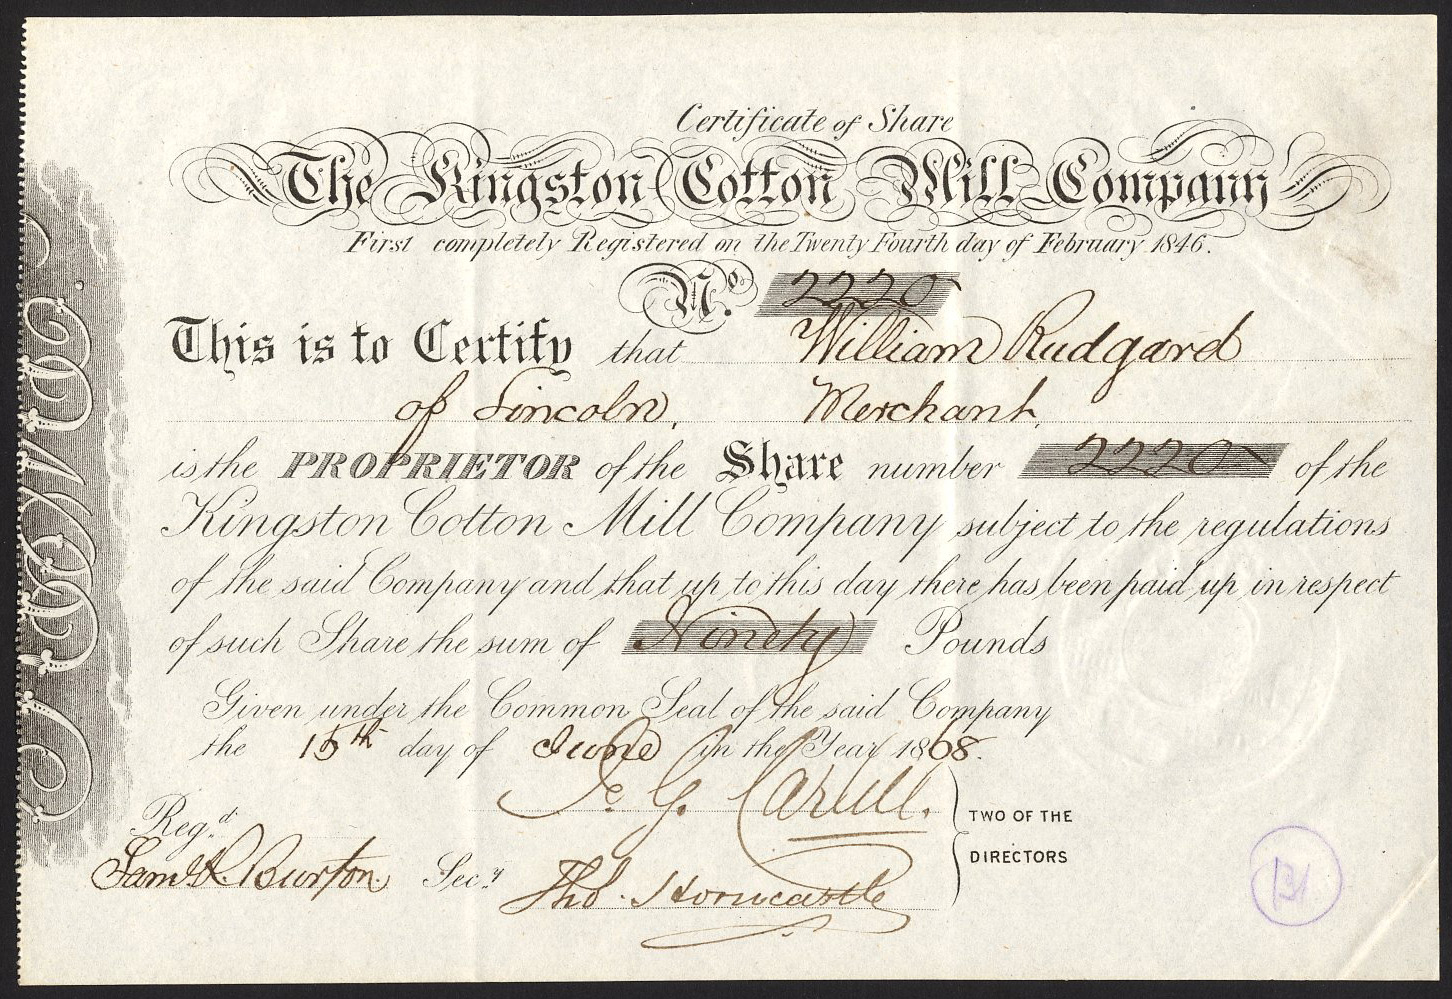 Certificate of Share
The Kingston Cotton Mill Company
First completely Registered on the Twenty Fourth day of February 1846.
No. 2220
This is to Certify that William Rudgard
of Lincoln, Merchant,
is the PROPRIETOR of the Share number 2220 of the
Kingston Cotton Mill Company subject to the regulations
of the said Company and that up to this day there has been paid up in respect
of such Share the sum of Ninety Pounds
Given under the Common Seal of the said Company
the 15th day of June in the Year 1868.
Regd
Saml R. Burton Secy
Thos. Horncastle
TWO OF THE
DIRECTORS